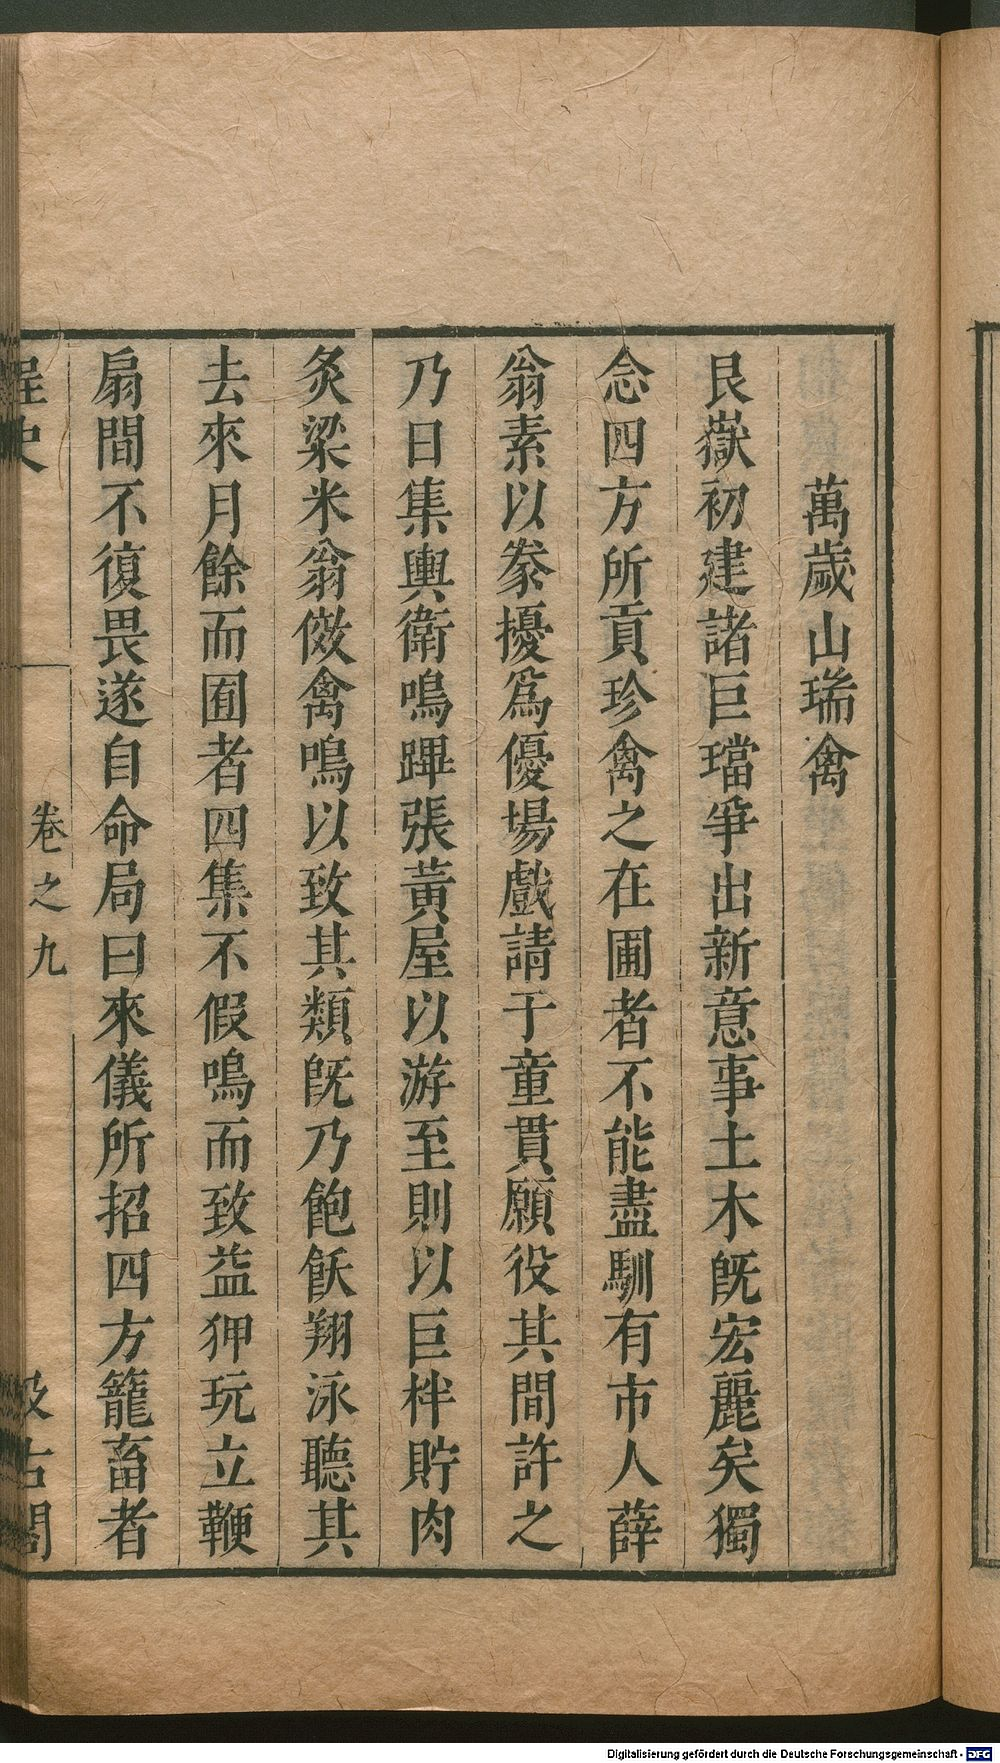 萬歲山瑞禽
艮嶽初建諸巨璫爭出新意事土木旣宏麗矣獨
念四方所貢珍禽之在圃者不能盡馴有市人薛
翁素以豢擾爲優場戲請于童貫願役其間許之
乃日集輿衛鳴蹕張黃屋以游至則以巨柈貯肉
炙粱米翁傚禽鳴以致其類旣乃飽飫翔泳聽其
去來月餘而囿者四集不假鳴而致益狎玩立鞭
扇間不復畏遂自命局曰來儀所招四方籠畜者
桯史
卷之九
汲古閣
Digitalisierung gefördert durch die Deutsche Forschungsgemeinschaft - DFG